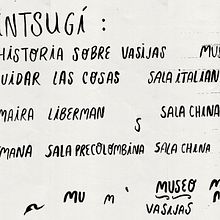 INTSUGI:
HISTORIA SOBRE VASIJAS MUS
UIDAR LAS COSAS SALA ITALIAN
MAIRA LIBERMAN SALA CHINA
S
MANA SALA PRECOLOMBINA SALA CHINA
MU M MUSEO
VASIJAS